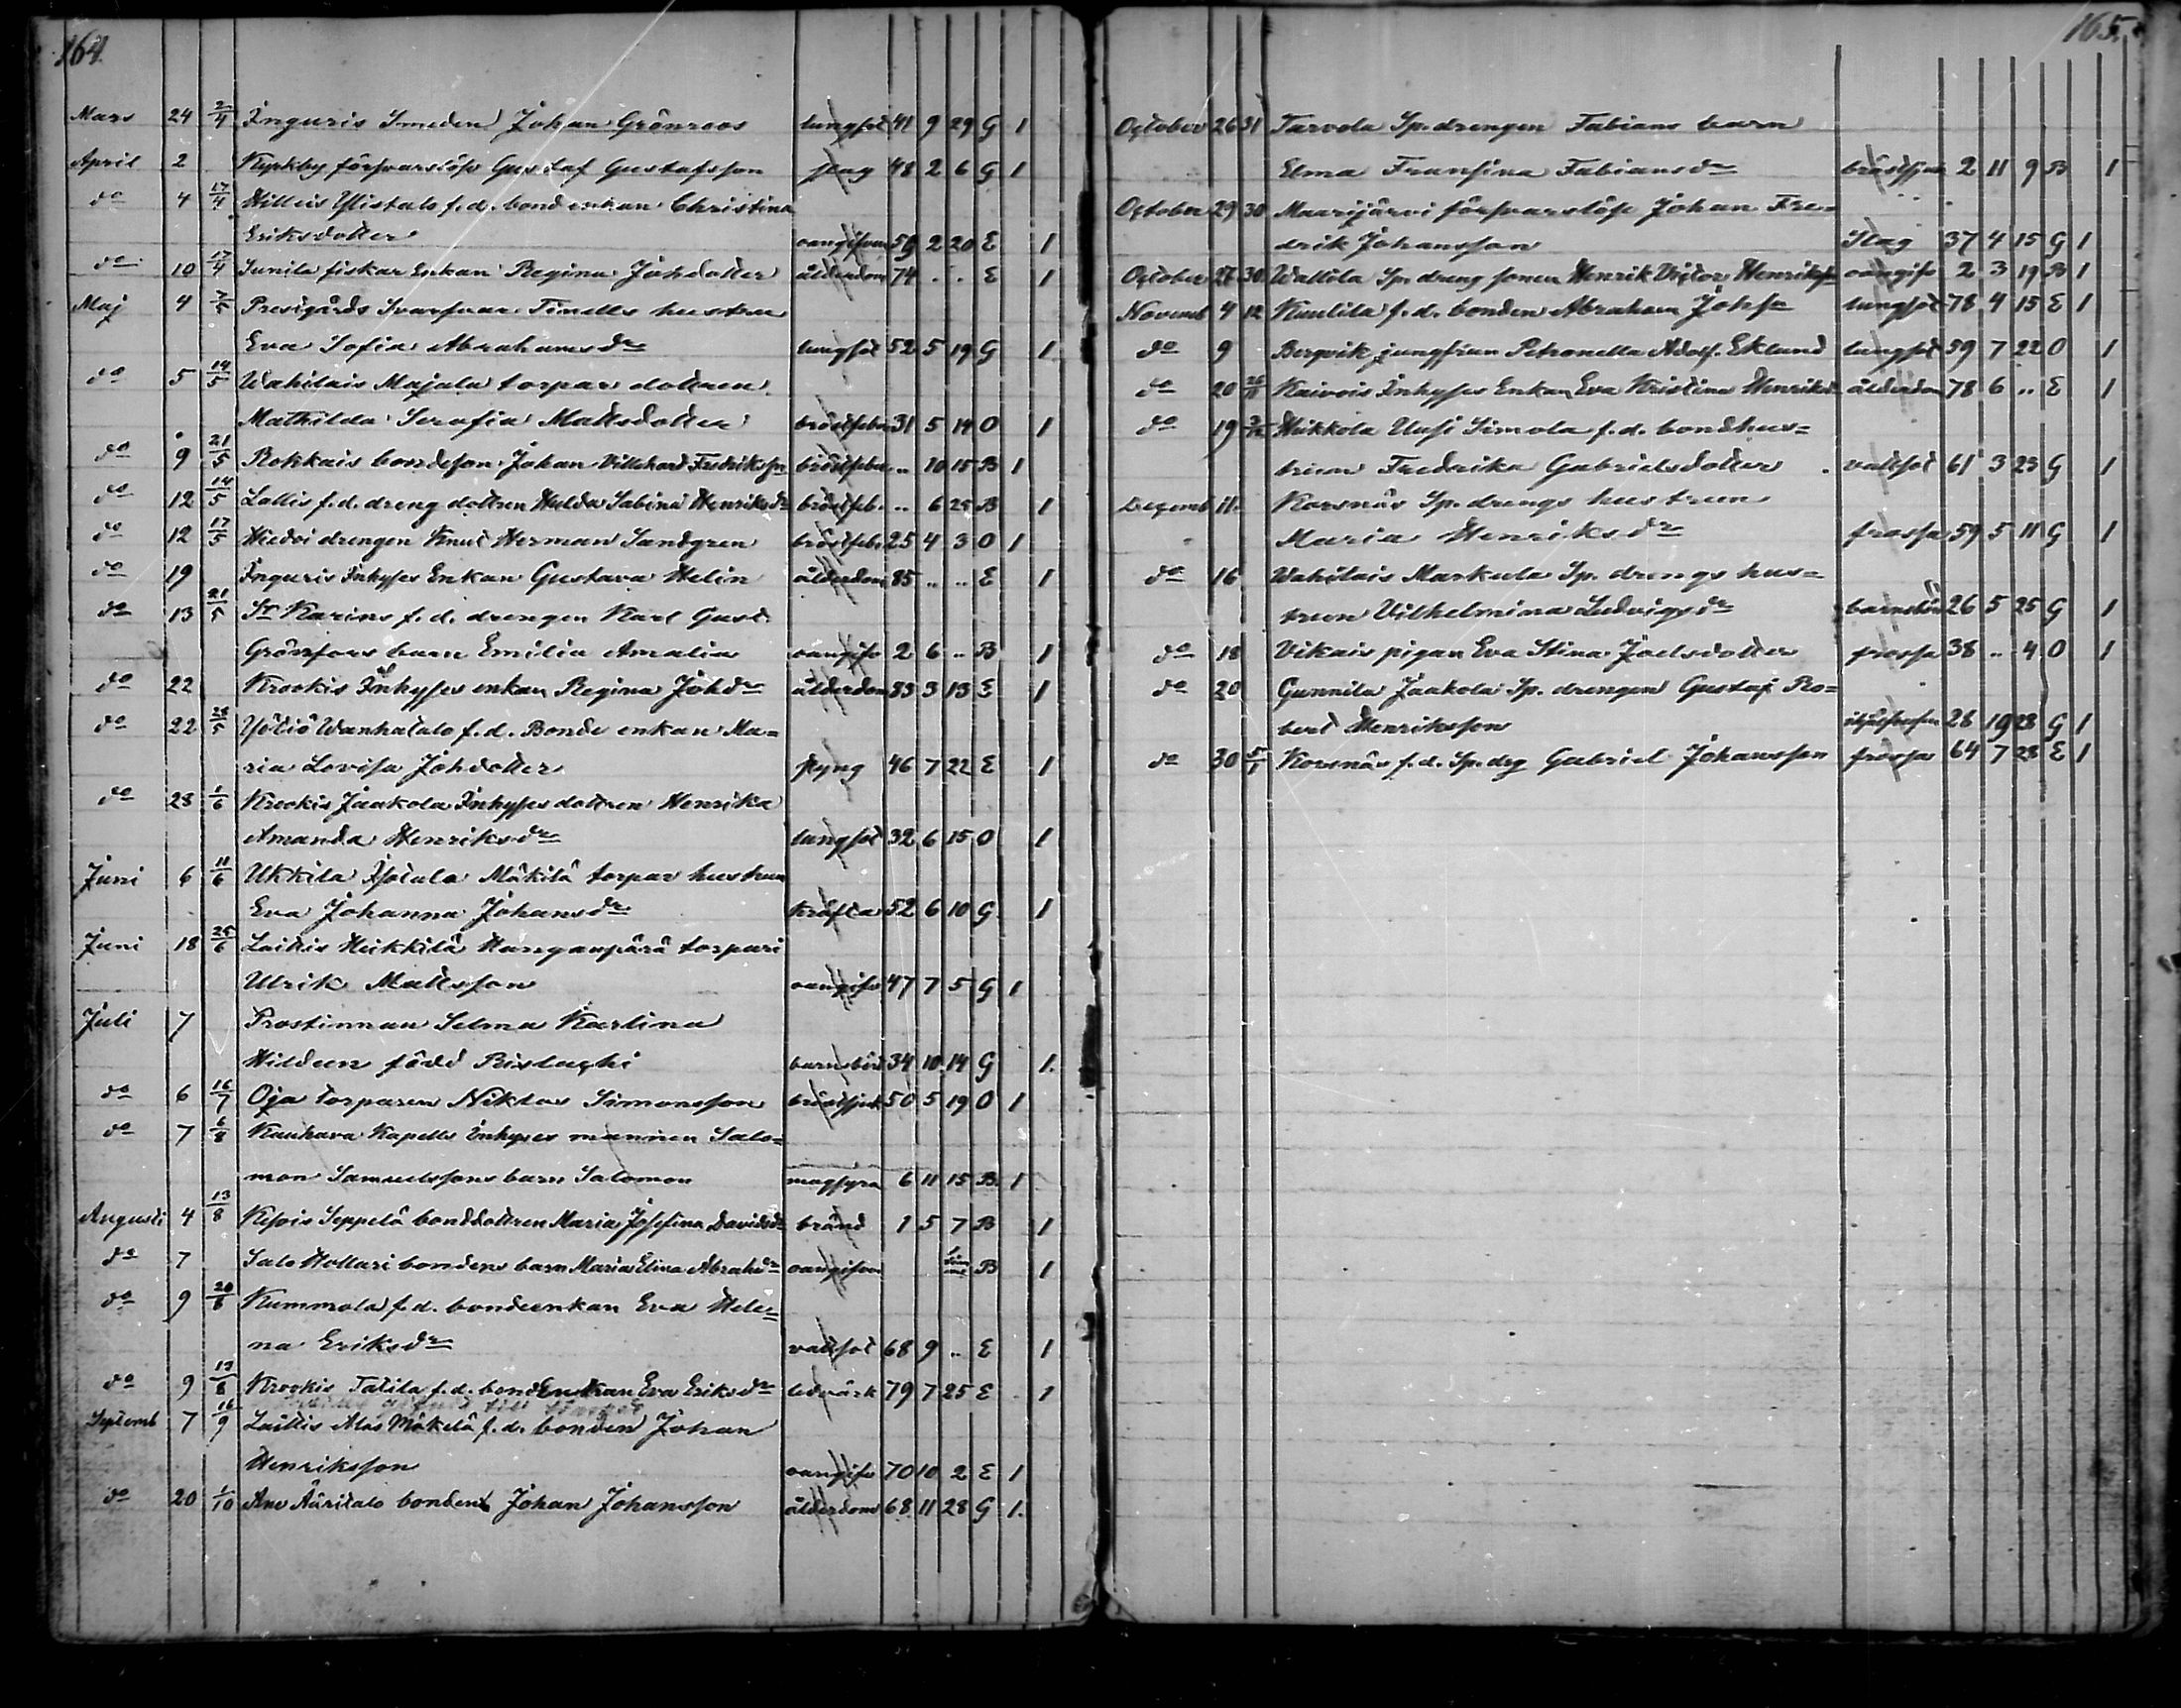 164.
Mars 24 2/4 Inguris Smeden Johan Grönroos lungsot 41 9 29 G 1
April 2 Kyrkby försvarslöse Gustaf Gustafsson slag 48 2 6 G 1
do 4 17/4 Hilleis Ylistalo f.d. bond enkan Christina
Eriksdotter oangifven 59 2 20 E 1
do 10 17/4 Junila fiskar Enkan Regina Johdotter ålderdom 74 .. .. E 1
Maj 4 7/5 Prestgårds Svarfvar Tinells hustru
Eva Sofia Abrahamsdr lungsot 52 5 19 G 1
do 5 14/5 Wahilais Majala torpar dottren
Mathilda Serafia Mattsdotter bröstfeber 31 5 14 O 1
do 9 21/5 Rokkais bondeson Johan Villehard Fredriksson bröstfeber .. 10 15 B 1
do 12 14/5 Lallis f.d. dreng dottren Hulda Sabina Henriksdr bröstfeb. .. 6 25 B 1
do 12 17/5 Hiedoi drengen Knut Herman Sandgren bröstfeb. 25 4 3 O 1
do 19 Inguris Inhyses Enkan Gustava Helin ålderdom 85 .. .. E 1
do 13 21/5 St Karins f.d. drengen Karl Gust.
Grönfors barn Emilia Amalia oangifv 2 6 .. B 1
do 22 Krookis Inhyses enkan Regina Johdr ålderdom 83 3 13 E 1
do 22 28/5 Yötiö Wanhatalo f.d. Bonde enkan Ma=
ria Lovisa Johdotter styng 46 7 22 E 1
do 28 1/6 Krookis Jaakola Inhyses dottren Henrika
Amanda Henriksdr lungsot 32 6 15 O 1
Juni 6 11/6 Ukkila Isotalo Mäkilä torpar hustrun
Eva Johanna Johansdr kräfta 52 6 10 G 1
Juni 18 25/6 Laihis Heikkilä Hanganpärä torpari
Ulrik Mattsson oangifv 47 7 5 G 1
Juli 7 Prostinnan Selma Karlina
Hildeen född Rislachi barnsbörd 34 10 14 G 1.
do 6 16/7 Oja torparen Niklas Simonsson bröstsjuk 50 5 19 O 1
do 7 6/8 Kauhava Kapells Inhyses mannen Salo=
mon Samuelssons barn Salomon magsyra 6 11 15 B 1
Augusti 4 13/8 Kepois Seppelä bonddottren Maria Josefina Davidsdr bränd 1 5 7 B 1
do 7 Salo Hollari bondens barn Maria Elina Abrahdr oangifven B 1
do 9 20/8 Kummola f.d. bondeenkan Eva Hele=
na Eriksdr vattsot 68 9 .. E 1
do 9 13/8 Krookis Talila f.d. bond Enkan Eva Eriksdr ledvärk 79 7 25 E 1
Septemb 7 16/9 Laillis Alas Mäkelä f.d. bonden Johan
Henriksson oangifv 70 10 2 E 1
do 20 1/10 Ano Äüritalo bonden Johan Johansson ålderdom 68 11 28 G 1.
165.
October 26 31 Tarvola Sp. drengen Fabians barn
Elma Fransina Fabiansdr bröstsjuk 2 11 9 B 1
October 29 30 Maarijärvi försvarslöse Johan Fre=
drik Johansson Slag 37 4 15 G 1
October 27 30 Wallila Sp. dreng sonen Henrik Victor Henriksson oangifv 2 3 19 B 1
Novemb 4 12 Kaulila f.d. bonden Abraham Johsn lungsot 78 4 15 E 1
do 9 Bergvik jungfrun Petronella Adolf. Eklund lungsot 59 7 22 O 1
do 20 26/11 Kaivois Inhyses Enkan Eva Kristina Henriksd ålderdom 78 6 .. E 1
do 19 Heikkola Uusi Simola f.d. bondhus=
trun Fredrika Gabrielsdotter vattsot 61 3 23 G 1
Decemb 11. Korsnäs Sp. drengs hustrun
Maria Henriksdr frossa 59 5 11 G 1
do 16 Wahilais Markula Sp. drengs hus=
trun Vilhelmina Ludvigsdr barnsbörd 26 5 25 G 1
do 18 Vikais pigan Eva Stina Joelsdotter frossa 38 .. 4 O 1
do 20 Gunnila Jaakola Sp. drengen Gustaf Ro=
bert Henriksson 28 10 28 G 1
do 30 5/1 Korsnäs f.d. Sp. drg Gabriel Johansson frossa 64 7 28 E 1